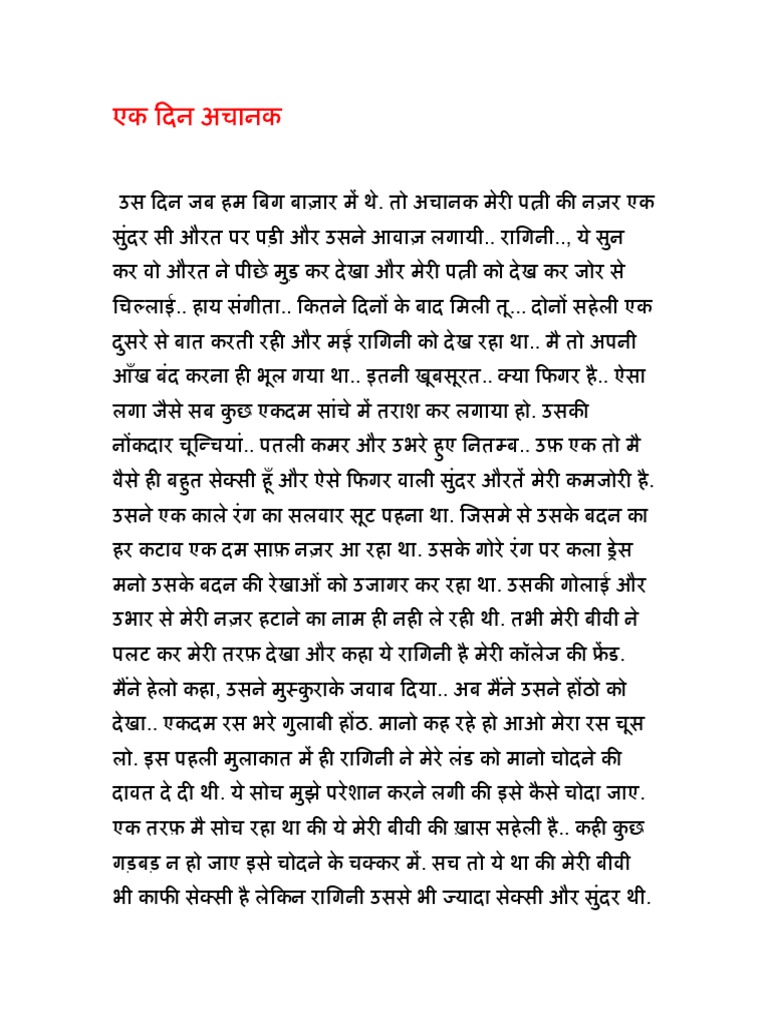 एक दिन अचानक
उस दिन जब हम बिग बाज़ार में थे. तो अचानक मेरी पत्नी की नज़र एक
सुंदर सी औरत पर पड़ी और उसने आवाज़ लगायी.. रागिनी.., ये सुन
कर वो औरत ने पीछे मुड़ कर देखा और मेरी पत्नी को देख कर जोर से
चिल्लाई.. हाय संगीता.. कितने दिनों के बाद मिली तू... दोनों सहेली एक
दुसरे से बात करती रही और मई रागिनी को देख रहा था.. मै तो अपनी
आँख बंद करना ही भूल गया था.. इतनी खूबसूरत.. क्या फिगर है.. ऐसा
लगा जैसे सब कुछ एकदम सांचे में तराश कर लगाया हो. उसकी
नोंकदार चून्चियां.. पतली कमर और उभरे हुए नितम्ब.. उफ़ एक तो मै
वैसे ही बहुत सेक्सी हूँ और ऐसे फिगर वाली सुंदर औरतें मेरी कमजोरी है.
उसने एक काले रंग का सलवार सूट पहना था. जिसमे से उसके बदन का
हर कटाव एक दम साफ़ नज़र आ रहा था. उसके गोरे रंग पर कला ड्रेस
मनो उसके बदन की रेखाओं को उजागर कर रहा था. उसकी गोलाई और
उभार से मेरी नज़र हटाने का नाम ही नही ले रही थी. तभी मेरी बीवी ने
पलट कर मेरी तरफ़ देखा और कहा ये रागिनी है मेरी कॉलेज की फ्रेंड.
मैंने हेलो कहा, उसने मुस्कुराके जवाब दिया.. अब मैंने उसने होंठो को
देखा.. एकदम रस भरे गुलाबी होंठ. मानो कह रहे हो आओ मेरा रस चूस
लो. इस पहली मुलाकात में ही रागिनी ने मेरे लंड को मानो चोदने की
दावत दे दी थी. ये सोच मुझे परेशान करने लगी की इसे कैसे चोदा जाए.
एक तरफ़ मै सोच रहा था की ये मेरी बीवी की ख़ास सहेली है.. कही कुछ
गड़बड़ न हो जाए इसे चोदने के चक्कर में. सच तो ये था की मेरी बीवी
भी काफी सेक्सी है लेकिन रागिनी उससे भी ज्यादा सेक्सी और सुंदर थी.